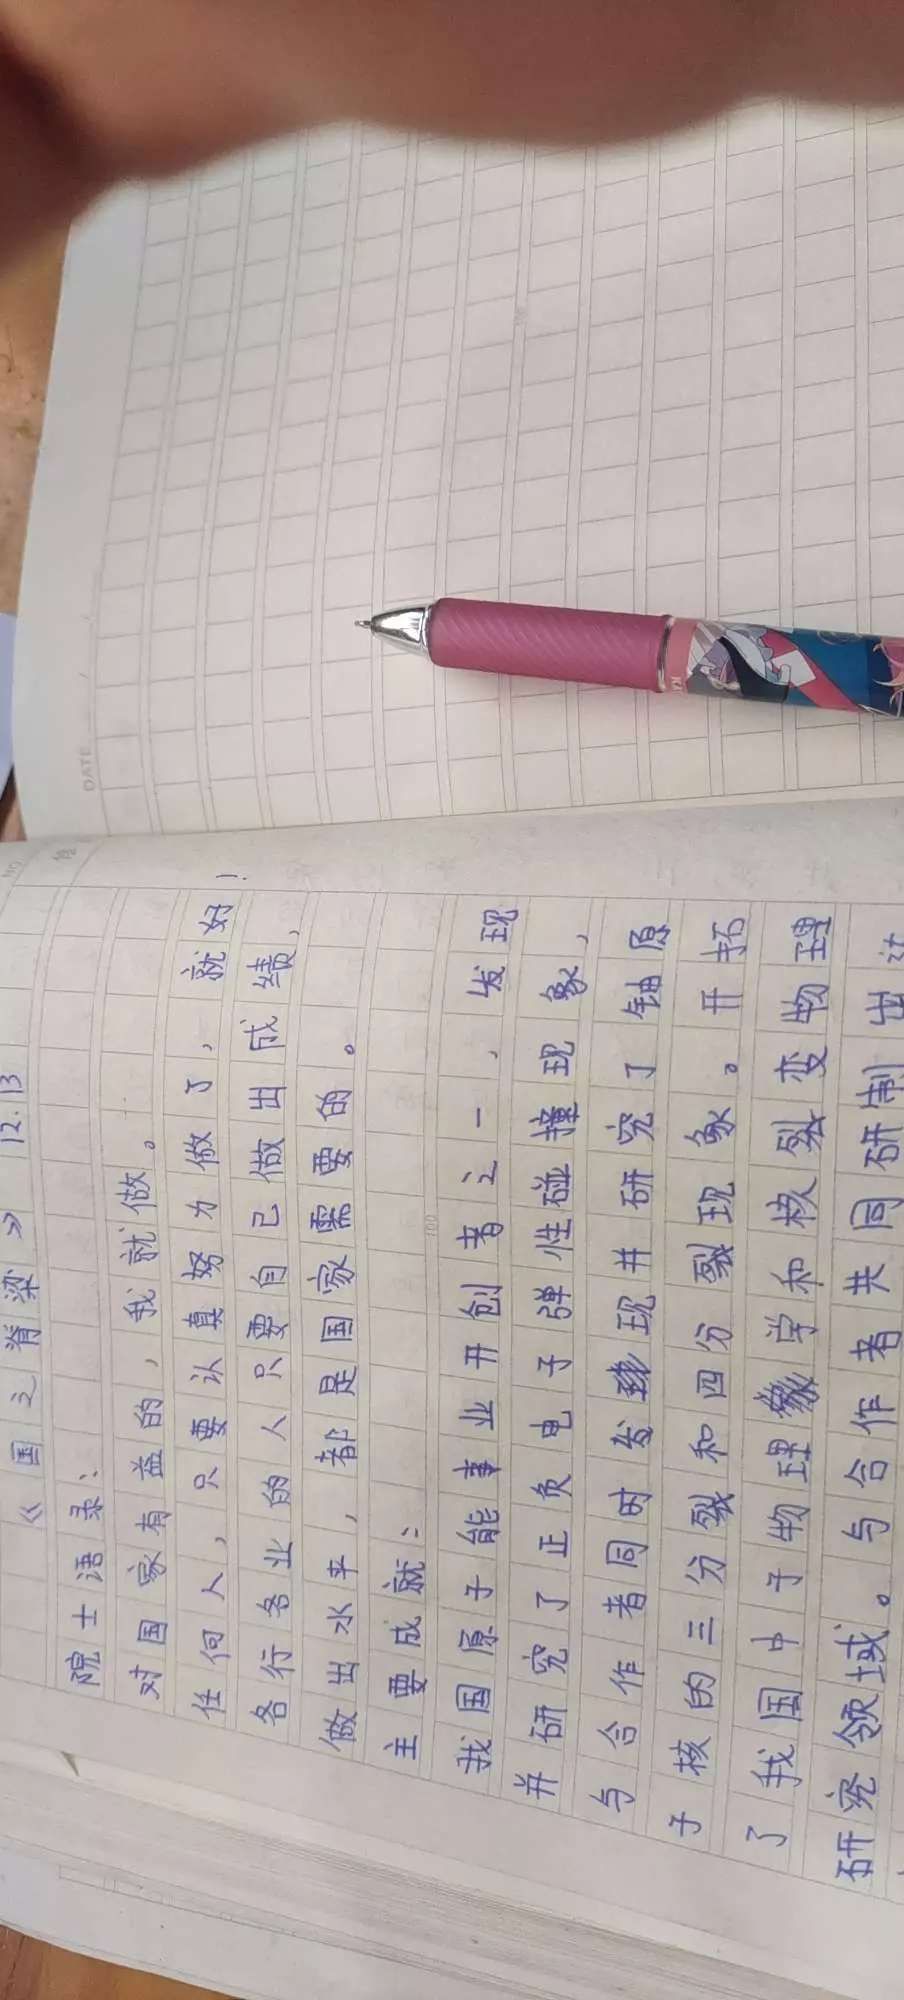 《国之脊梁》 12.13
院士语录：
对国家有益的，我就做。
任何人，只要认真努力做了，就好！
各行各业的人只要自己做出成绩，
做出水平，都是国家需要的。
主要成就：
我国原子能事业开创者之一，发现
并研究了正负电子弹性碰撞现象，
与合作者同时发现并研究了铀原
子核的三分裂和四分裂现象。开拓
了我国中子物理学和核裂变物理
研究领域。与合作者共同研制出
DATE
NO
100
KA